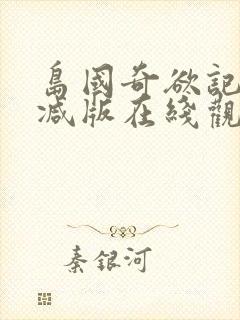 島國奇欲記
減版在綫觀
秦銀河